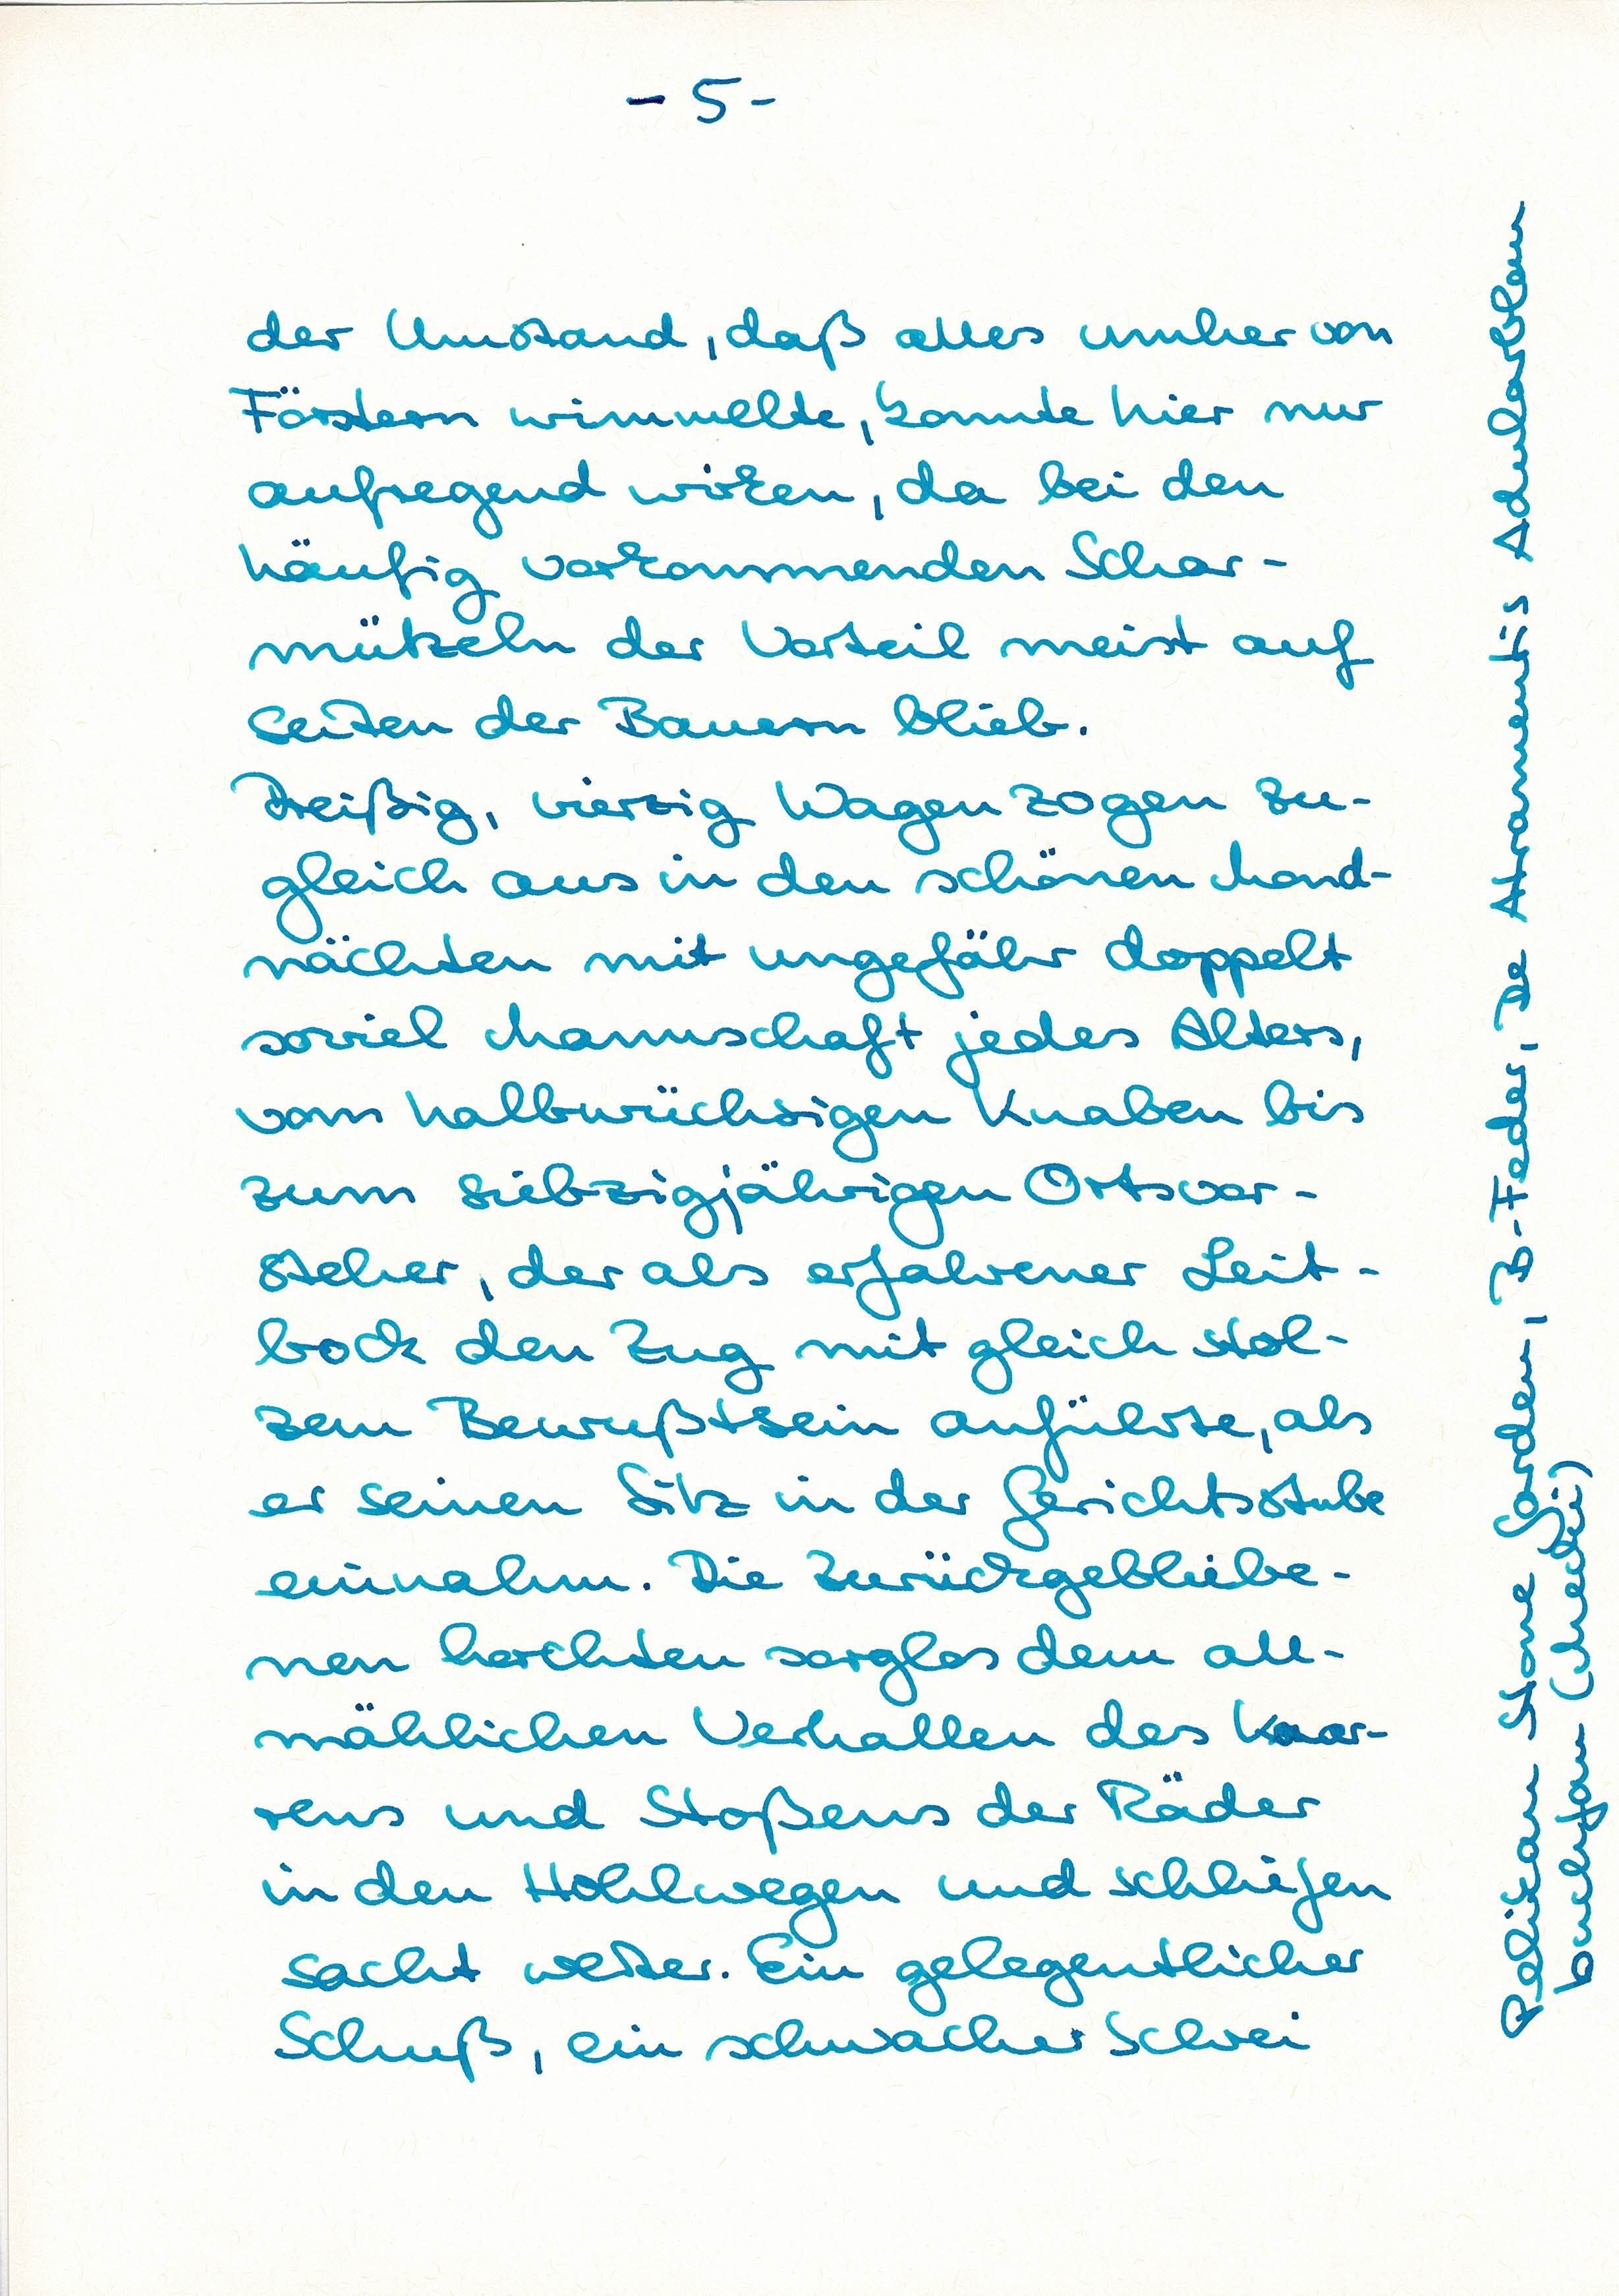 - 5 -
der Umstand, daß alles umher von
Förstern wimmelte, konnte hier nur
aufregend wirken, da bei den
häufig vorkommenden Schar-
mützeln der Vorteil meist auf
seiten der Bauern blieb.
Dreißig, vierzig Wagen zogen zu-
gleich aus in den schönen Mond-
nächten mit ungefähr doppelt
soviel Mannschaft jedes Alters,
vom halbwüchsigen Knaben bis
zum siebzigjährigen Ortsvor-
steher, der als erfahrener Leit-
bock den Zug mit gleich stol-
zem Bewußtsein anführte, als
er seinen Sitz in der Gerichtsstube
einnahm. Die Zurückgebliebe-
nen horchten sorglos dem all-
mählichen Verhallen des Knar-
rens und Stoßens der Räder
in den Hohlwegen und schliefen
sacht weiter. Ein gelegentlicher
Schuß, ein schwacher Schrei
Pelikan Stone Garden, B-Feder, De Atramentis Adularblau